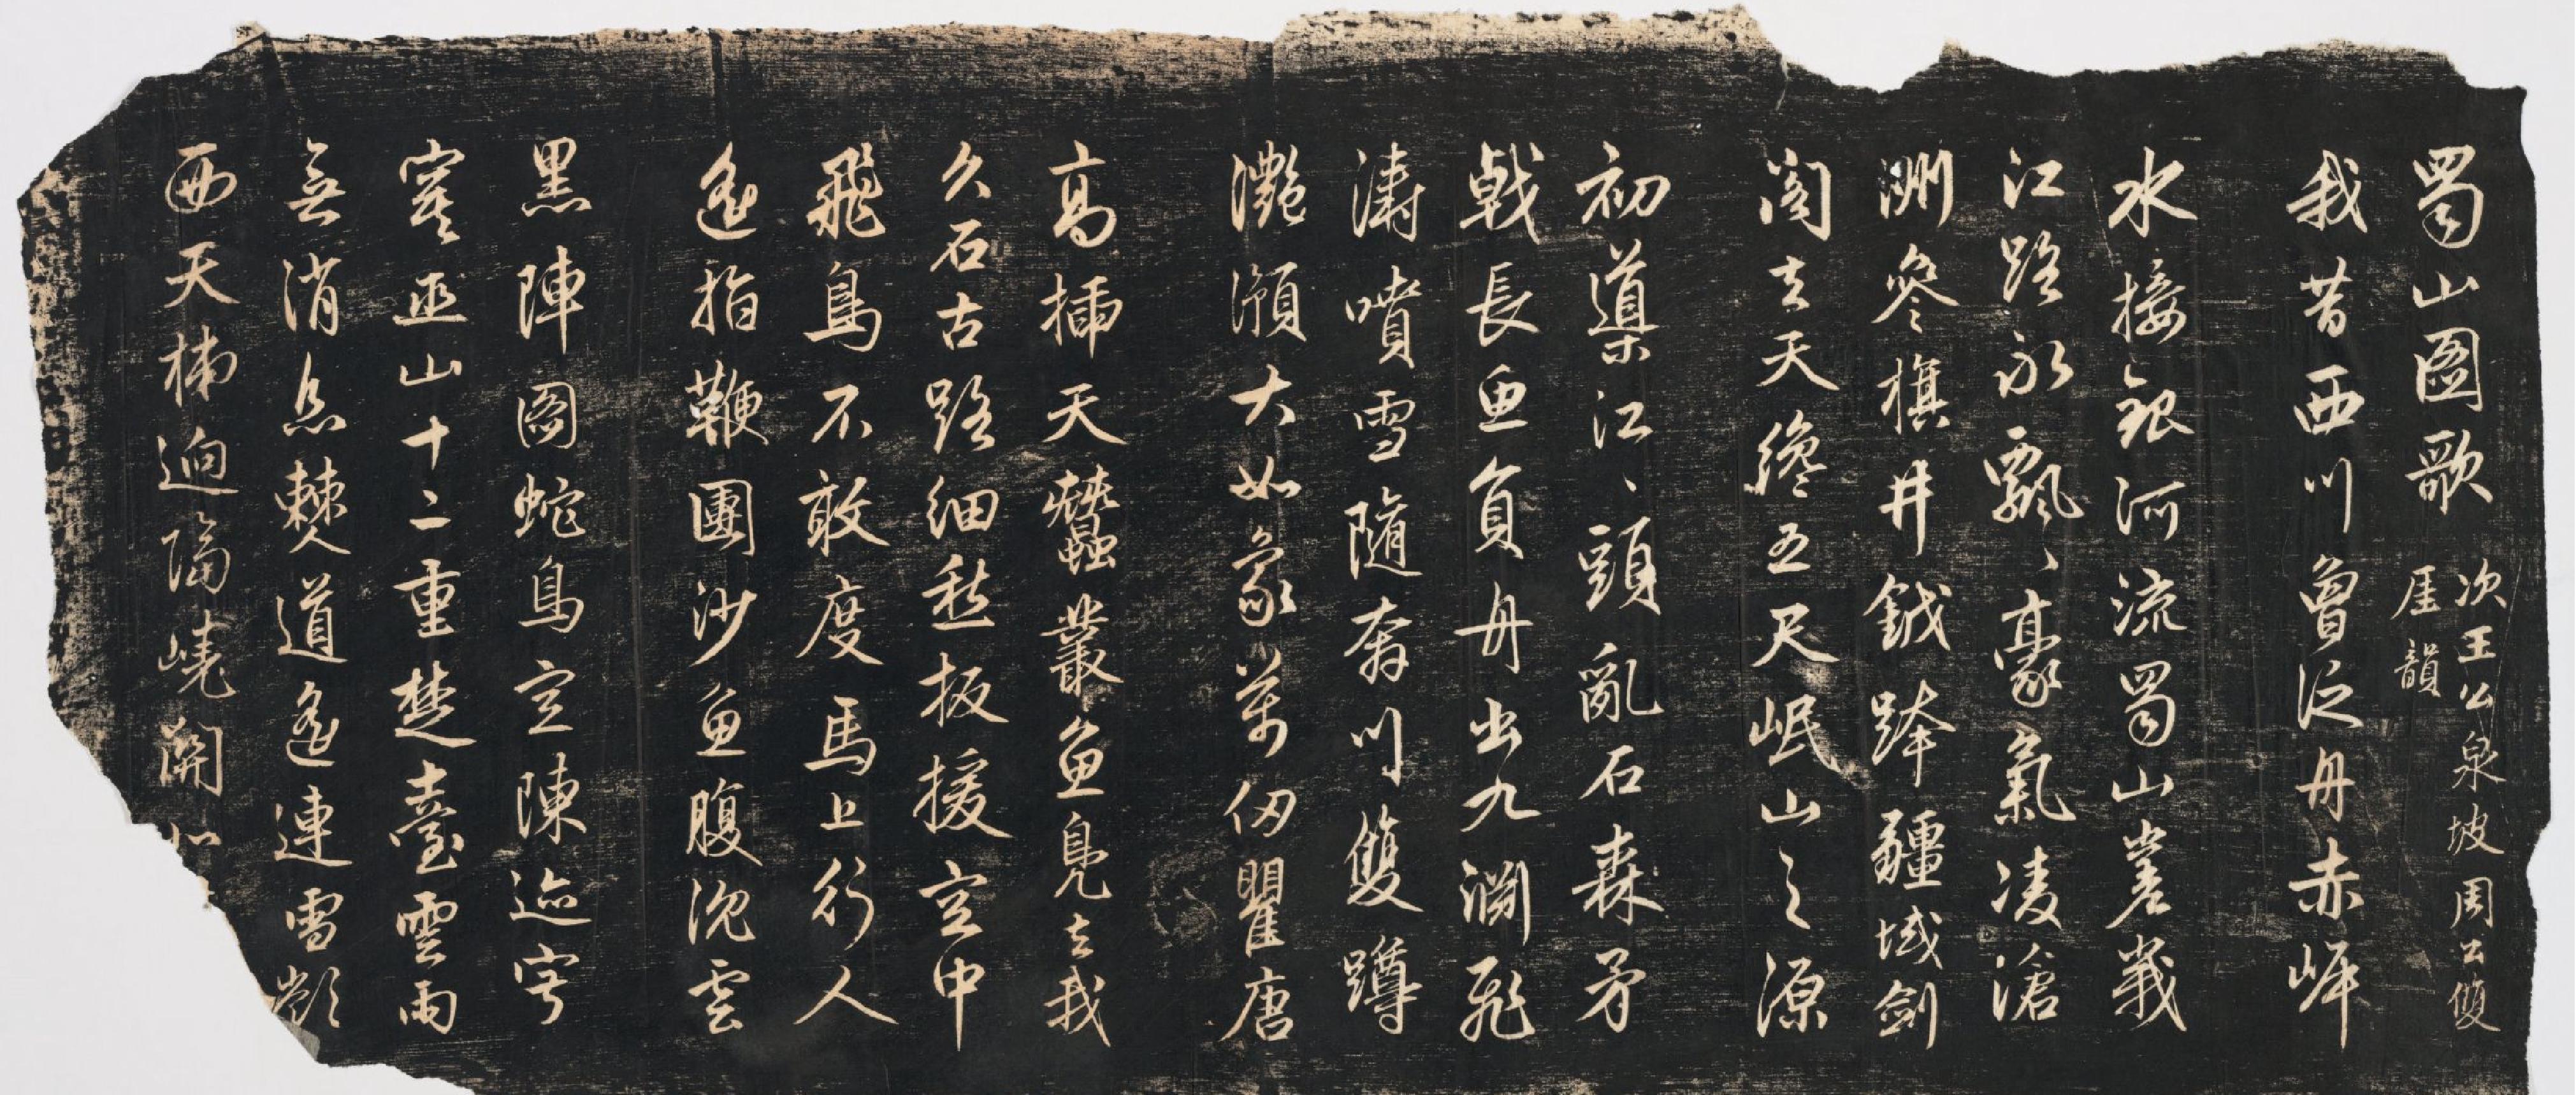 蜀山圖歌
次王公泉坡周公雙
厓韻
我昔西川曾泛舟赤岸
水接銀河流蜀山岩峩
江路永飄、豪氣凌滄
洲參旗井鉞跨疆域劍
閣去天纔五尺岷山之源
初導江、頭亂石森矛
戟長魚負舟出九淵飛
濤噴雪隨奔川雙蹲
灩澦大如象萬仞瞿唐
高插天蠶叢魚鳧去我
久石古路細愁扳援空中
飛鳥不敢度馬上行人
遙指鞭團沙魚腹沉雲
黑陣圖蛇鳥空陳迹穹
窿巫山十二重楚臺雲雨
無消息僰道遙連雪嶺
西天梯迥隔嶢關